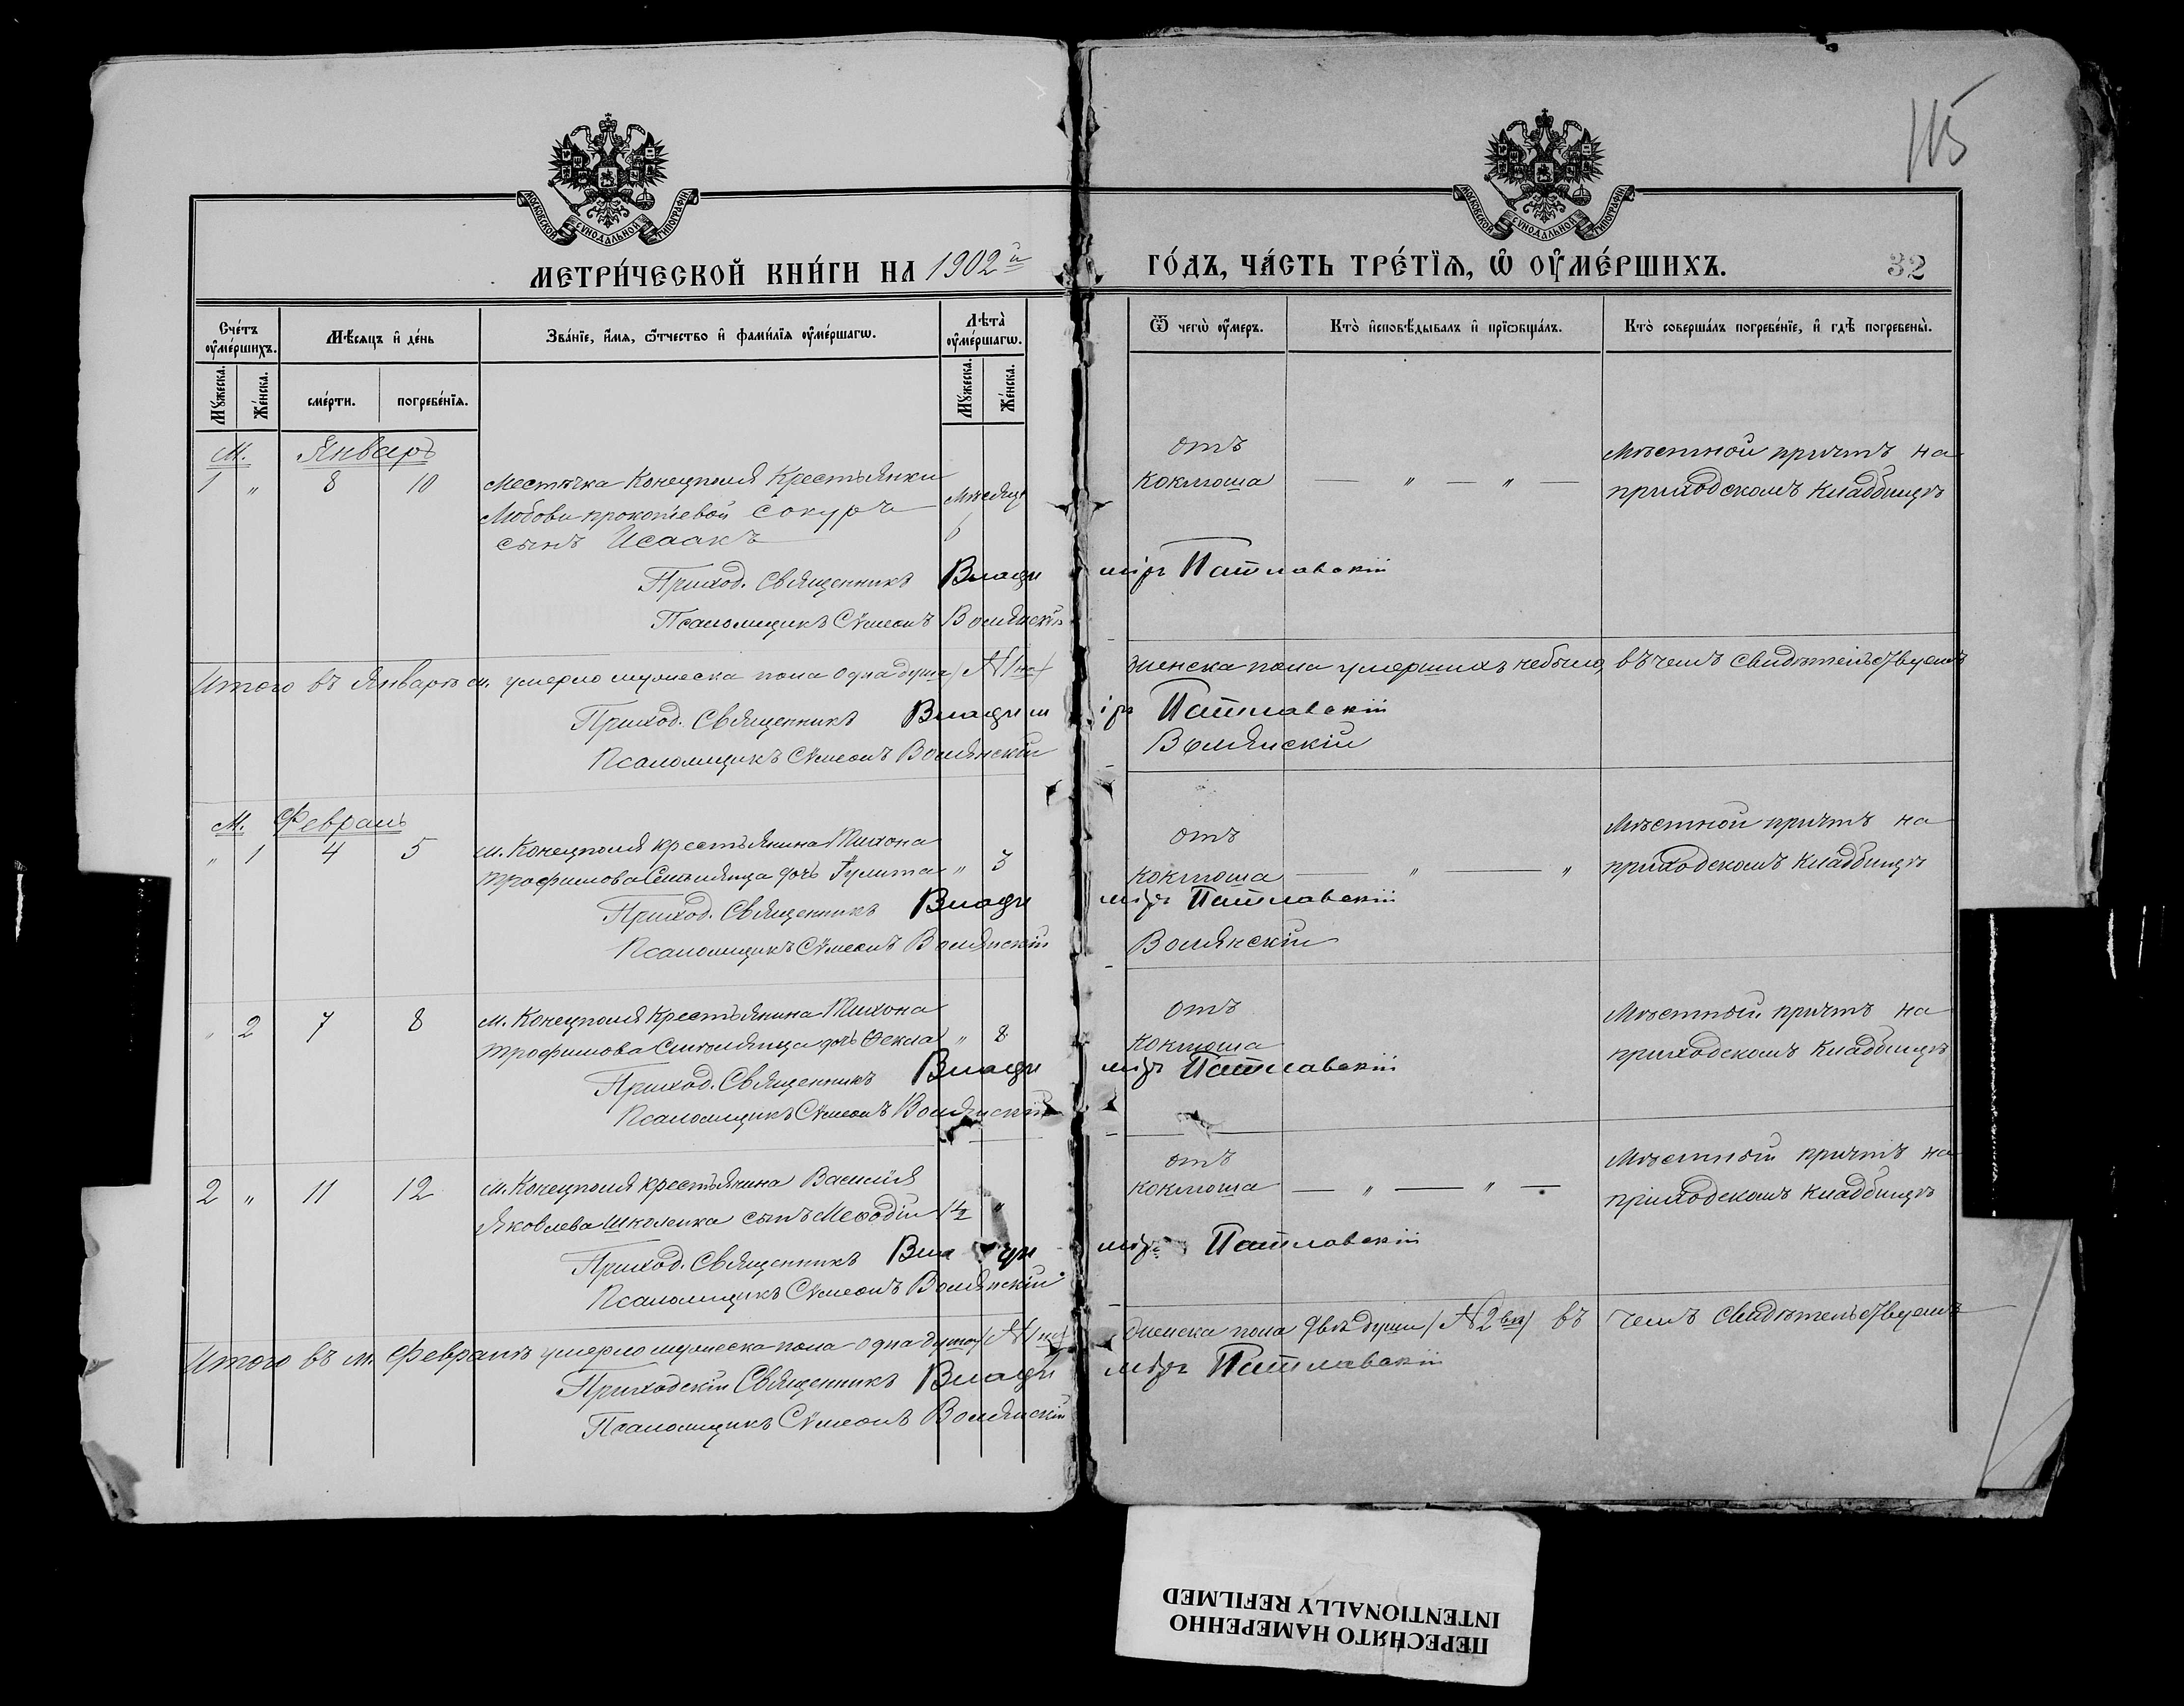 115
МОСКОВСКОЙ СѴНОДАЛЬНОЙ ТИПОГРАФІИ
МОСКОВСКОЙ СѴНОДАЛЬНОЙ ТИПОГРАФІИ
МЕТРИ́ЧЕСКОЙ КНИ́ГИ НА 1902й
ГО́ДЪ, ЧА́СТЬ ТРЕ́ТІѦ, Ѡ҆ ОУ҆МЕ́РШИХЪ.
32
Сче́тъ оу҆ме́ршихъ.
Мѣ́сяцъ и҆ де́нь
Зва́нїе, и҆́мя, ѻ҆́тчество и҆ фами́лїя оу҆ме́ршагѡ.
Лѣ́та оу҆ме́ршагѡ.
Ѿ чегѡ̀ оу҆́меръ.
Кто̀ и҆сповѣ́дывалъ и҆ прїѡбща́лъ.
Кто̀ соверша́лъ погребе́нїе, и҆ гдѣ̀ погребены̀.
Мꙋ́жеска.
Же́нска.
сме́рти.
погребе́нїя.
Мꙋ́жеска.
Же́нска.
М. Январь
1 " 8 10 Местечка Конецполя Крестьянки
Любови Прокопіевой Сокуръ
сынъ Исаакъ
Мѣсяцъ
6
отъ
коклюша — " — " —
Мѣстной причтъ на
приходскомъ кладбищѣ
Приход. Священникъ Владиміръ Патлавскій
Псаломщикъ Сѵмеонъ Волянскій
Итого въ Январѣ м. умерло мужеска пола одна душа (№1на) женска пола умершихъ небыло, въ чемъ свидѣтельствуемъ
Приход. Священникъ Владиміръ Патлавскій
Псаломщикъ Сѵмеонъ Волянскій Волянскій
М. Февраль
" 1 4 5 м. Конецполя крестьянина Тихона
Трофимова дочь Іулита " 3
отъ
коклюша — " — "
Мѣстной причтъ на
приходскомъ кладбищѣ
Приход. Священникъ Владиміръ Патлавскій
Псаломщикъ Сѵмеонъ Волянскій Волянскій
" 2 7 8 м. Конецполя Крестьянина Тихона
Трофимова дочь Ѳекла " 8
отъ
коклюша
Мѣстный причтъ на
приходскомъ кладбищѣ
Приход. Священникъ Владиміръ Патлавскій
Псаломщикъ Сѵмеонъ Волянскій
2 " 11 12 м. Конецполя крестьянина Василія
Яковлева Школенка сынъ Меѳодій 1½ "
отъ
коклюша — " — " —
Мѣстный причтъ на
приходскомъ кладбищѣ
Приход. Священникъ Владиміръ Патлавскій
Псаломщикъ Сѵмеонъ Волянскій
Итого въ м. Февралѣ умерло мужеска пола одна душа (№1на) женска пола двѣ души (№2вѣ) въ чемъ свидѣтельствуемъ
Приходскій Священникъ Владиміръ Патлавскій
Псаломщикъ Сѵмеонъ Волянскій
ПЕРЕСНЯТО НАМЕРЕННО
INTENTIONALLY REFILMED